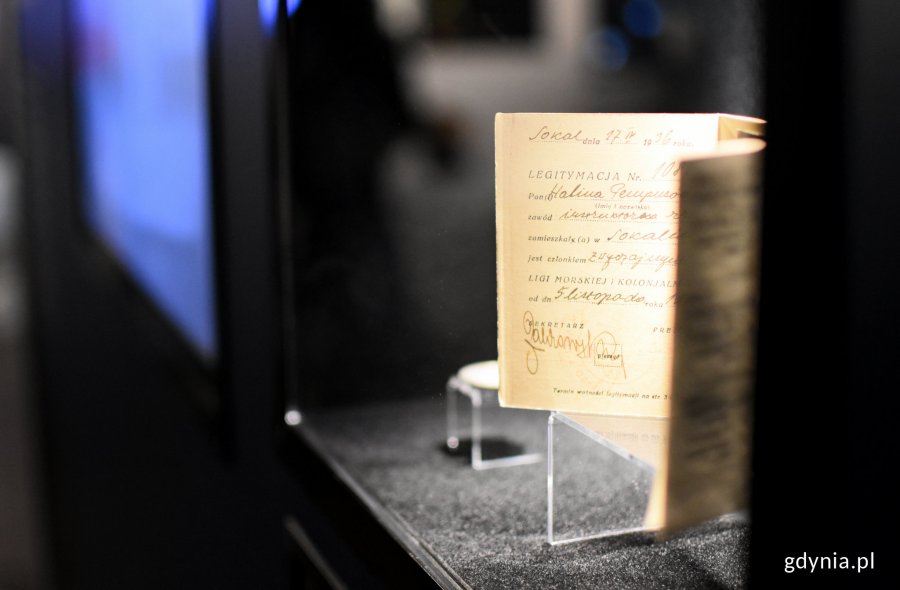 Sokal dnia 17 IV 1936 roku.
LEGITYMACJA Nr. 108
Pan(i) Halina
(imię i nazwisko)
zawód instruktorka
zamieszkały(a) w Sokalu
jest członkiem zwyczajnym
LIGI MORSKIEJ I KOLONJALN
od dn 5 listopada roku
SEKRETARZ PRE
Termin ważności legitymacji na str. 3
gdynia.pl